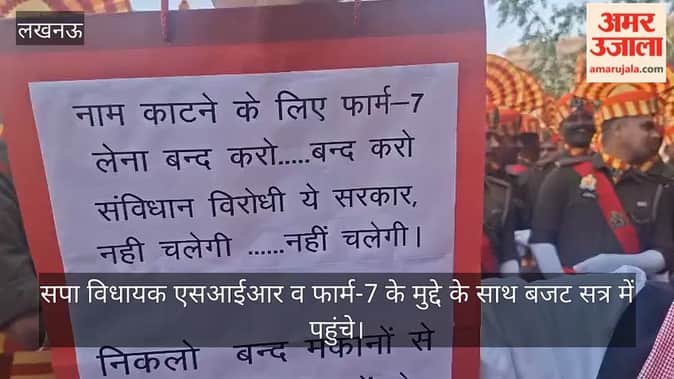 लखनऊ
अमर
उजाला
amarujala.com
नाम काटने के लिए फार्म–7
लेना बन्द करो.....बन्द करो
संविधान विरोधी ये सरकार,
नही चलेगी ......नहीं चलेगी।
सपा विधायक एसआईआर व फार्म-7 के मुद्दे के साथ बजट सत्र में
पहुंचे।
निकलो बन्द मकानों से